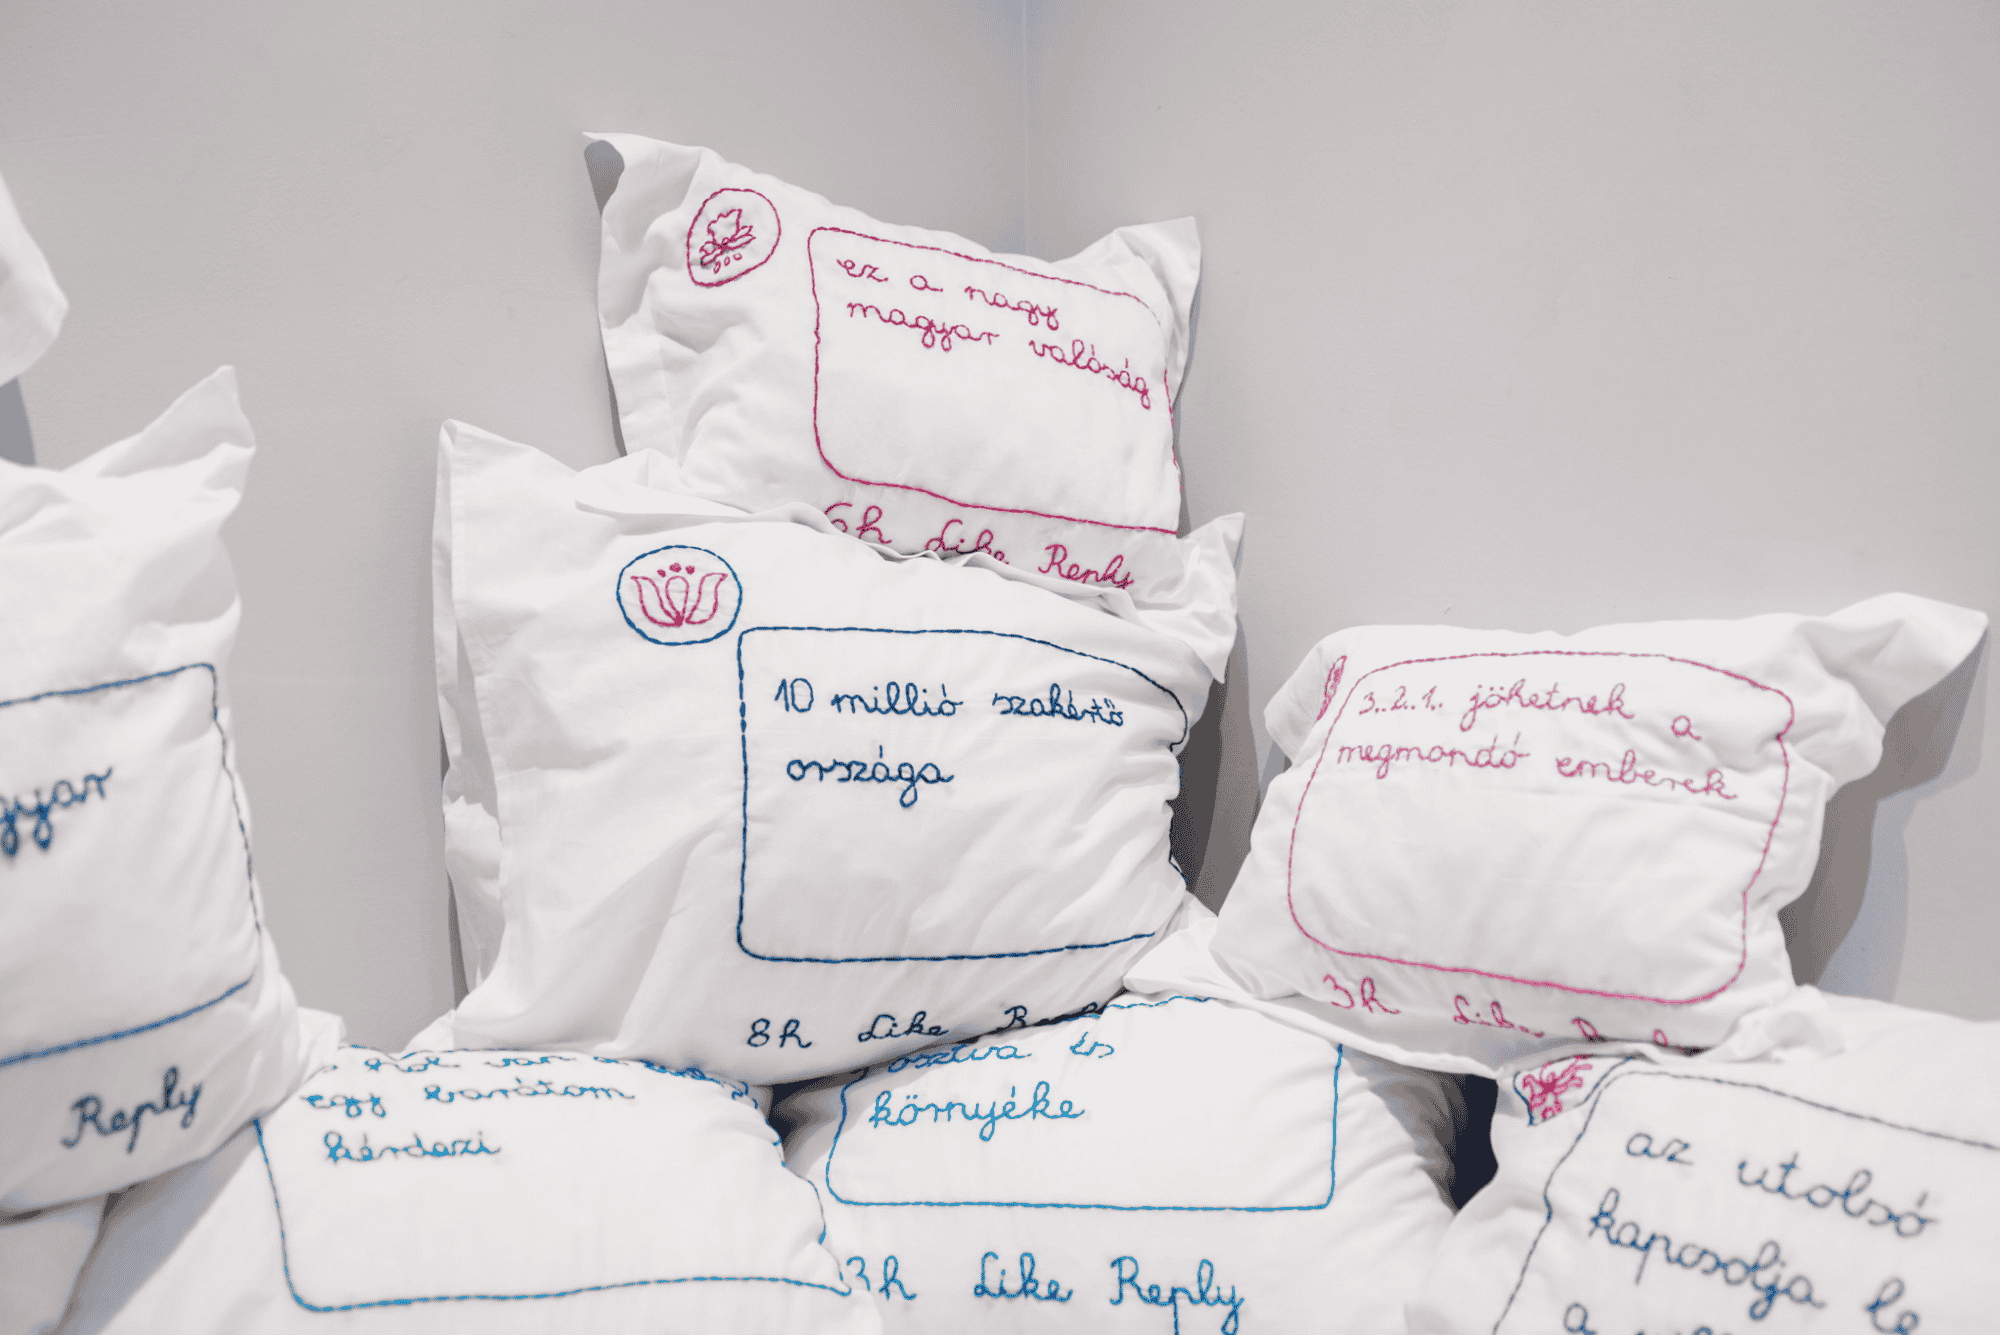 ez a nagy
magyar valóság
6h Like Reply
10 millió szakértő
országa
8h Like
3..2..1.. jöhetnek a
megmondó emberek
3h Like
Reply
egy barátom
kérdezi
osztva és
környéke
3h Like Reply
az utolsó
kapcsolja le
a